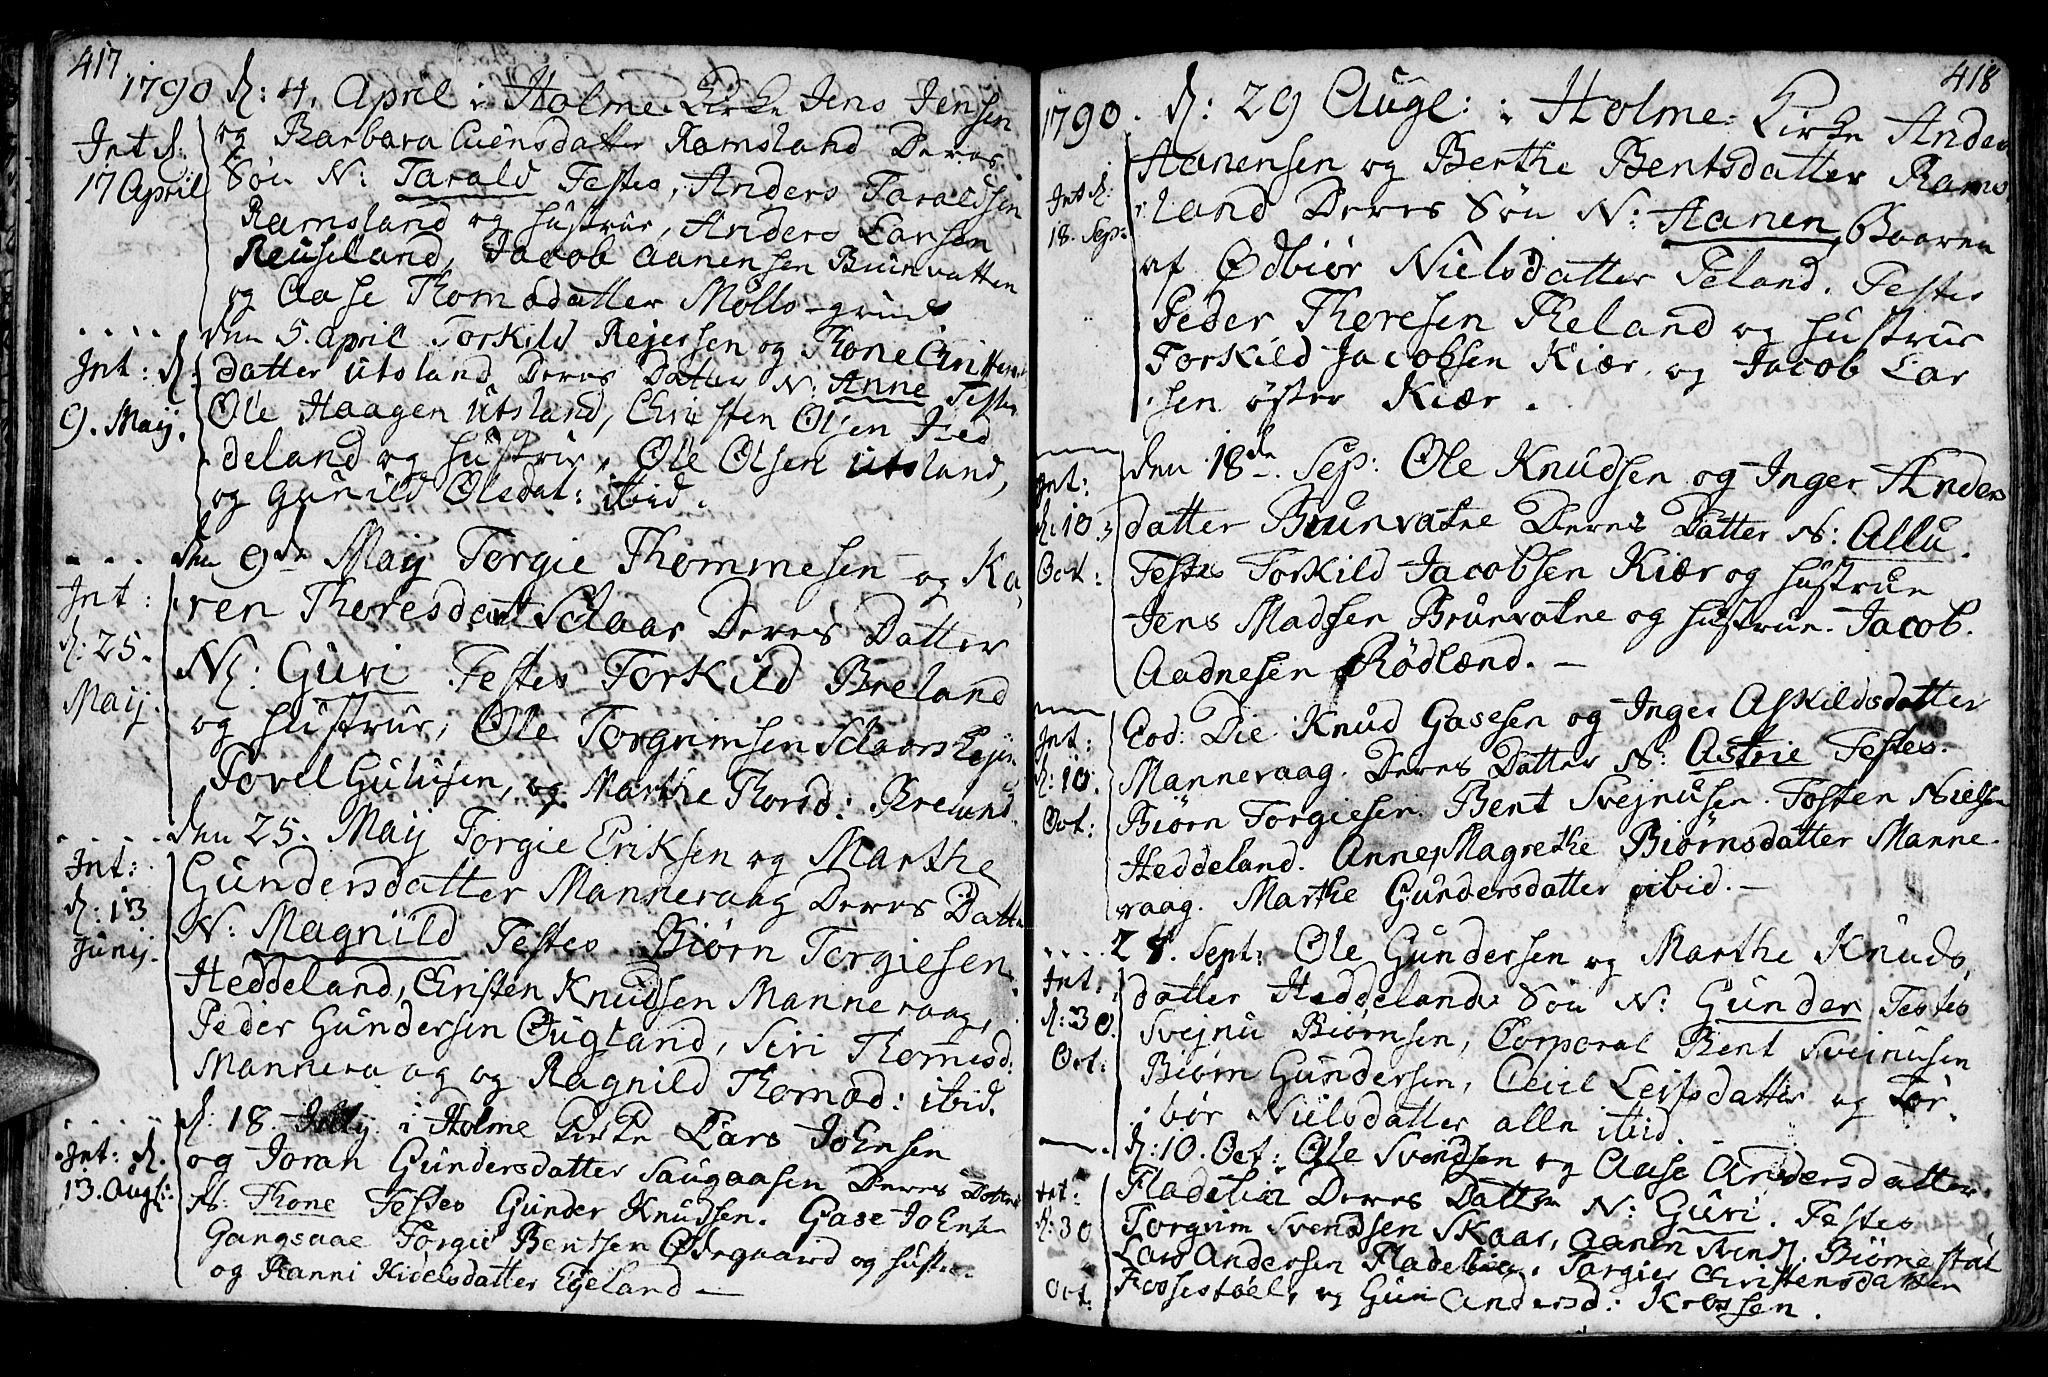 417
1790 d: 4. April i Holme Kirke Jens Jensen
Int d:
17 April
og Barbara Evensdatter Ramsland Deres
Søn N: Tarald Testes, Anders Taraldsen
Ramsland og hustrue, Anders Larsen
Reuseland, Jacob Aanensen Brunvatten
og Aase Thomsdatter Møllsgrund
den 5. April Torkild Rejersen og Thone Christens
Int: d:
9. Maij.
datter Utsland Deres Datter N: Anne Testes
Ole Haagen Utsland, Christen Olsen Hed
deland og hustrue, Ole Olsen Utsland,
og Gunild Olsdat: ibid.
den 9de Maij Torgie Thommesen og Ka
Int:
d: 25.
Maij.
ren Thoresdatt Sclaar Deres Datter
N: Guri Testes Torkild Breland
og hustrue, Ole Torgrimsen Sclaars
Tovel Gulusen, og Marthe Thorsd: Breland.
den 25. Maij Torgie Eriksen og Marthe
Int:
d: 13
Junij.
Gundersdatter Manneraag Deres Datter
N: Magnild Testes Biørn Torgiesen
Heddeland, Christen Knudsen Manneraag,
Peder Gundersen Øugland, Siri Thomesd:
Manneraag og Ragnild Thomsd: ibid.
d: 18. July i Holme Kirke Lars Johnsen
Int: d.
13. Augl:
og Joran Gundersdatter Saugaasen Deres Datter
N: Thone Testes Gunder Knudsen. Gase Johnsen
Gangsaae Torgie Bentsen Ødegaard og hustr.
og Ranni Kidelsdatter Egeland —
418
1790. d: 29 Augl: i Holme Kirke Anders
Int d:
18. Sep:
Aanensen og Berthe Bentsdatter Rams
land Deres Søn N: Aanen Baaren
af Ødbiør Nielsdatter Teland. Testes
Peder Thoresen Theland og hustrue
Torkild Jacobsen Kiær og Jacob Lar
sen øster Kiær.
den 18de Sep: Ole Knudsen og Inger Anders
Int:
d: 10.
Oct:
datter Brunvatne Deres Datter N: Allu.
Testes Torkild Jacobsen Kiær og hustrue
Jens Madsen Brunvatne og hustrue. Jacob
Aadnesen Rødland. —
Eod: Die Knud Gasesen og Inger Askildsdatter
Int:
d: 10.
Oct:
Manneraag. Deres Datter N: Astrie Testes.
Biørn Torgiesen. Bent Svejnusen. Tosten Nielsen
Heddeland. Anne Magrethe Biørnsdatter Manne
raag. Marthe Gundersdatter ibid. —
28. Sept: Ole Gundersen og Marthe Knuds,
Int:
d: 30.
Oct:
datter Heddelands Søn N: Gunder Testes
Svejnu Biørnsen, Corporal Bent Svejnusen
Biørn Gundersen, Cicil Leifsdatter og Tor
bør Nielsdatter alle ibid.
d: 10. Oct: Ole Svendsen og Aase Andersdatter
Int:
d: 30
Oct.
Fladebin Deres Datter N: Guri. Testes
Torgrim Svendsen Skaar, Aanen Svends. Biørnestøl
Lars Andersen Fladebin, Torgier Christensdatter
Fossestøel, og Gun Andersd: